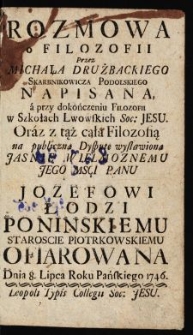 ROZMOWA
O FILOZOFII
Przez
MICHAŁA DRUŻBACKIEGO
SKARBNIKOWICZA PODOLSKIEGO
NAPISANA,
á przy dokończeniu FILOZOFII
w Szkołach Lwowskich Soc: JESU.
Oráz z tąż całą Filozofią
na publiczną Dysputę wystawiona
JASNIE WIELMOZNEMU
JEGO MSCI PANU
JOZEFOWI
ŁODZI
PONINSKIEMU
STAROSCIE PIOTRKOWSKIEMU
OFIAROWANA
Dnia 8. Lipca Roku Pańskiego 1746.
Leopoli Typis Collegii Soc: JESU.